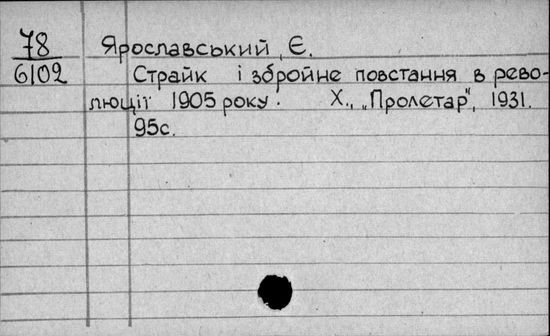 78
6102
Ярославський, Є.
Страйк і збройне повстання в рево-
люції 1905 року. Х., „Пролетар", 1931.
95с.